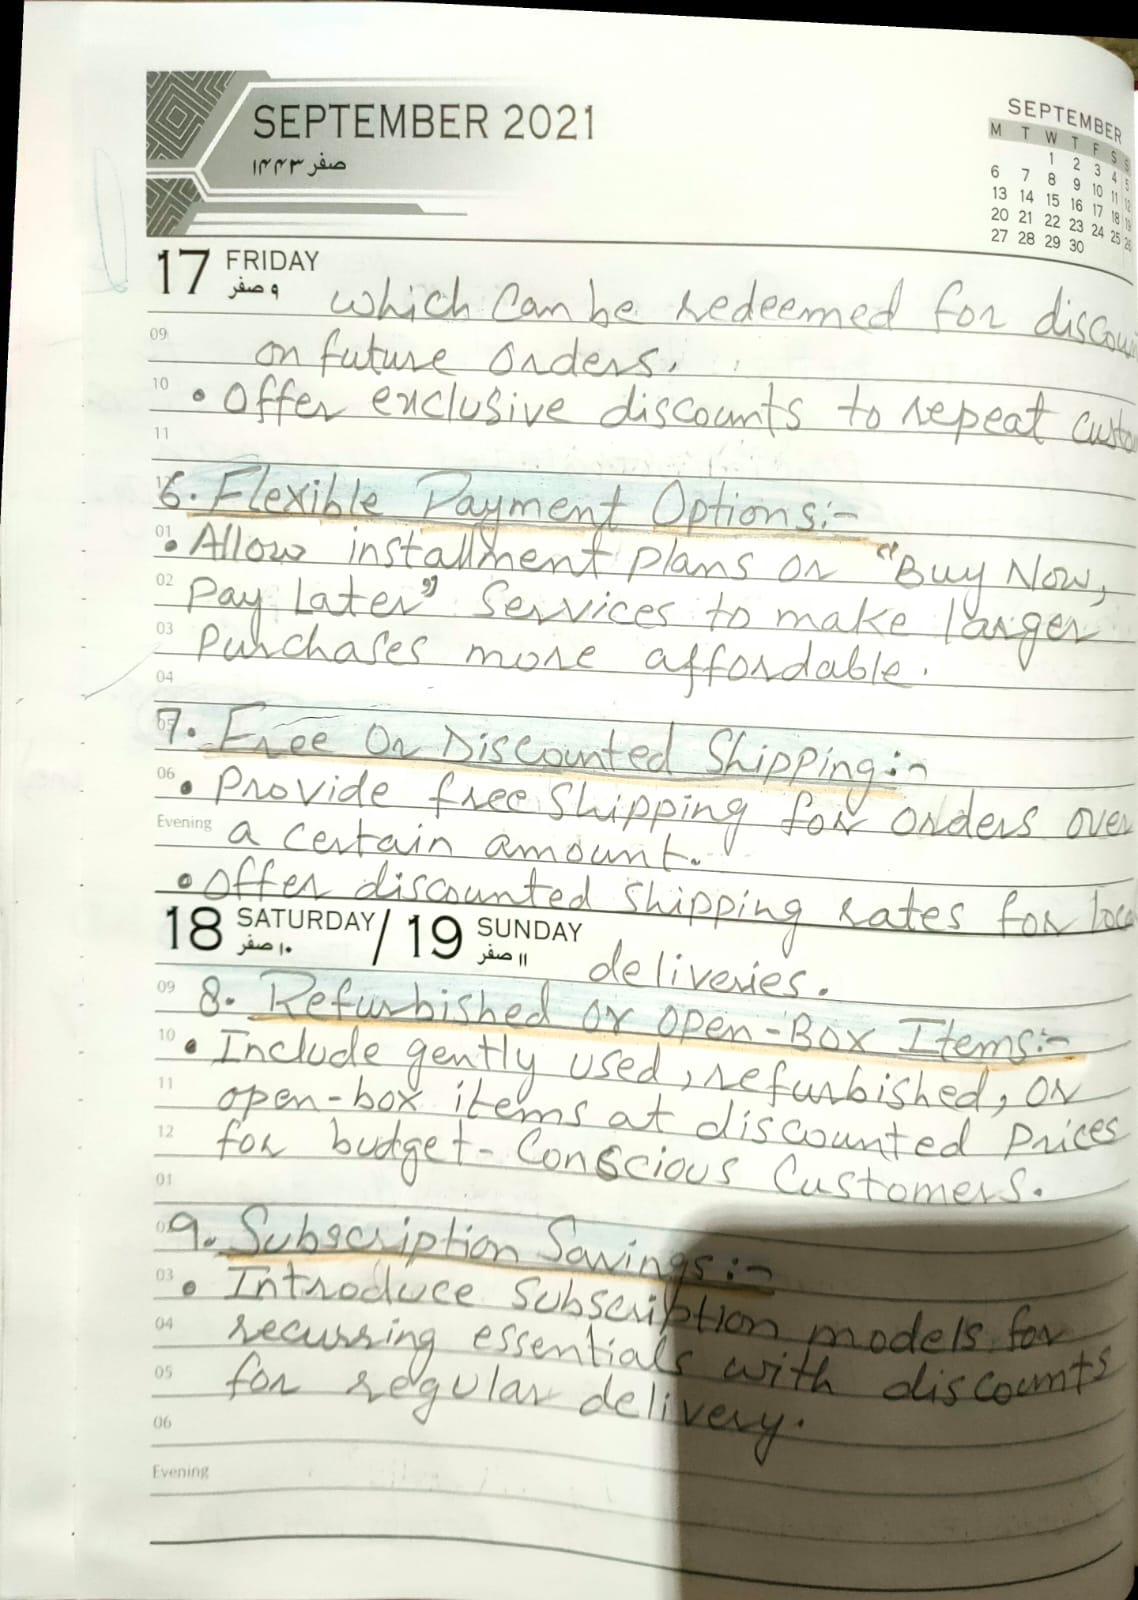 SEPTEMBER 2021
صفر ۱۴۴۳
SEPTEMBER
M T W T F S S
1 2 3 4 5
6 7 8 9 10 11 12
13 14 15 16 17 18 19
20 21 22 23 24 25 26
27 28 29 30
17 FRIDAY
۹ صفر
which can be redeemed for discou
09
on future orders.
10
• Offer exclusive discounts to repeat custo
11
6. Flexible Payment Options:-
01
• Allow installment plans or "Buy Now,
02
Pay Later" Services to make larger
03
Purchases more affordable.
04
7. Free Or Discounted Shipping:-
06
• Provide free Shipping for orders over
Evening
a certain amount.
• Offer discounted shipping rates for loca
18 SATURDAY / 19 SUNDAY
۱۰ صفر
۱۱ صفر
deliveries.
09
8. Refurbished or open-Box Items:-
10
• Include gently used, refurbished, or
11
open-box items at discounted Prices
12
for budget-Conscious Customers.
01
9. Subscription Savings:-
03
• Introduce Subscription models for
04
recurring essentials with discounts
05
for regular delivery.
06
Evening